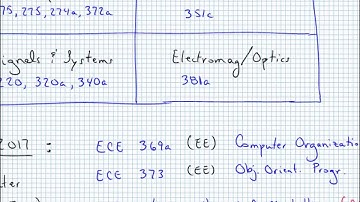 75, 275, 274a, 372a
351c
ignals & Systems
Electromag/Optics
220, 320a, 340a
381a
2017 : ECE 369a (EE) Computer Organizatio
ECE 373 (EE) Obj. Orient. Progr.